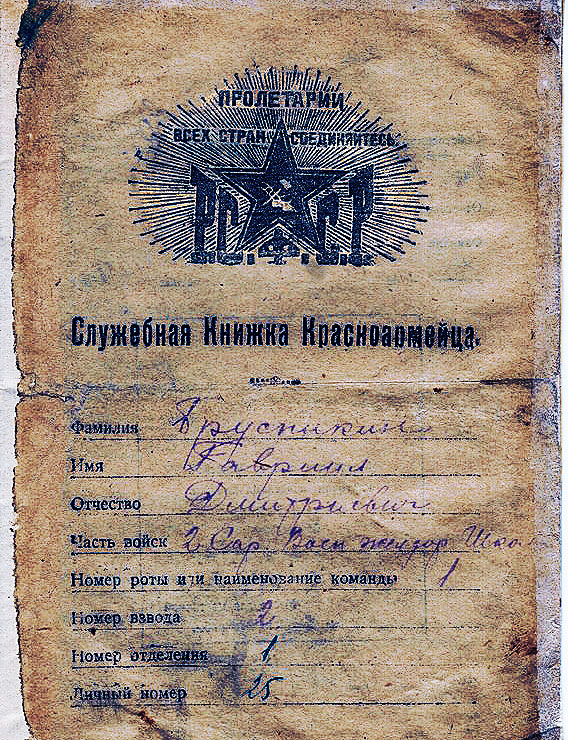 ПРОЛЕТАРИИ
ВСЕХ СТРАН СОЕДИНЯЙТЕСЬ
Р.С.Ф.С.Р.
Служебная Книжка Красноармейца.
Фамилия Брусникин
Имя Гавриил
Отчество Дмитриевич
Часть войск 2 Сар. Воен желдор Школ
Номер роты или наименование команды 1
Номер взвода 2
Номер отделения 1
Личный номер 25